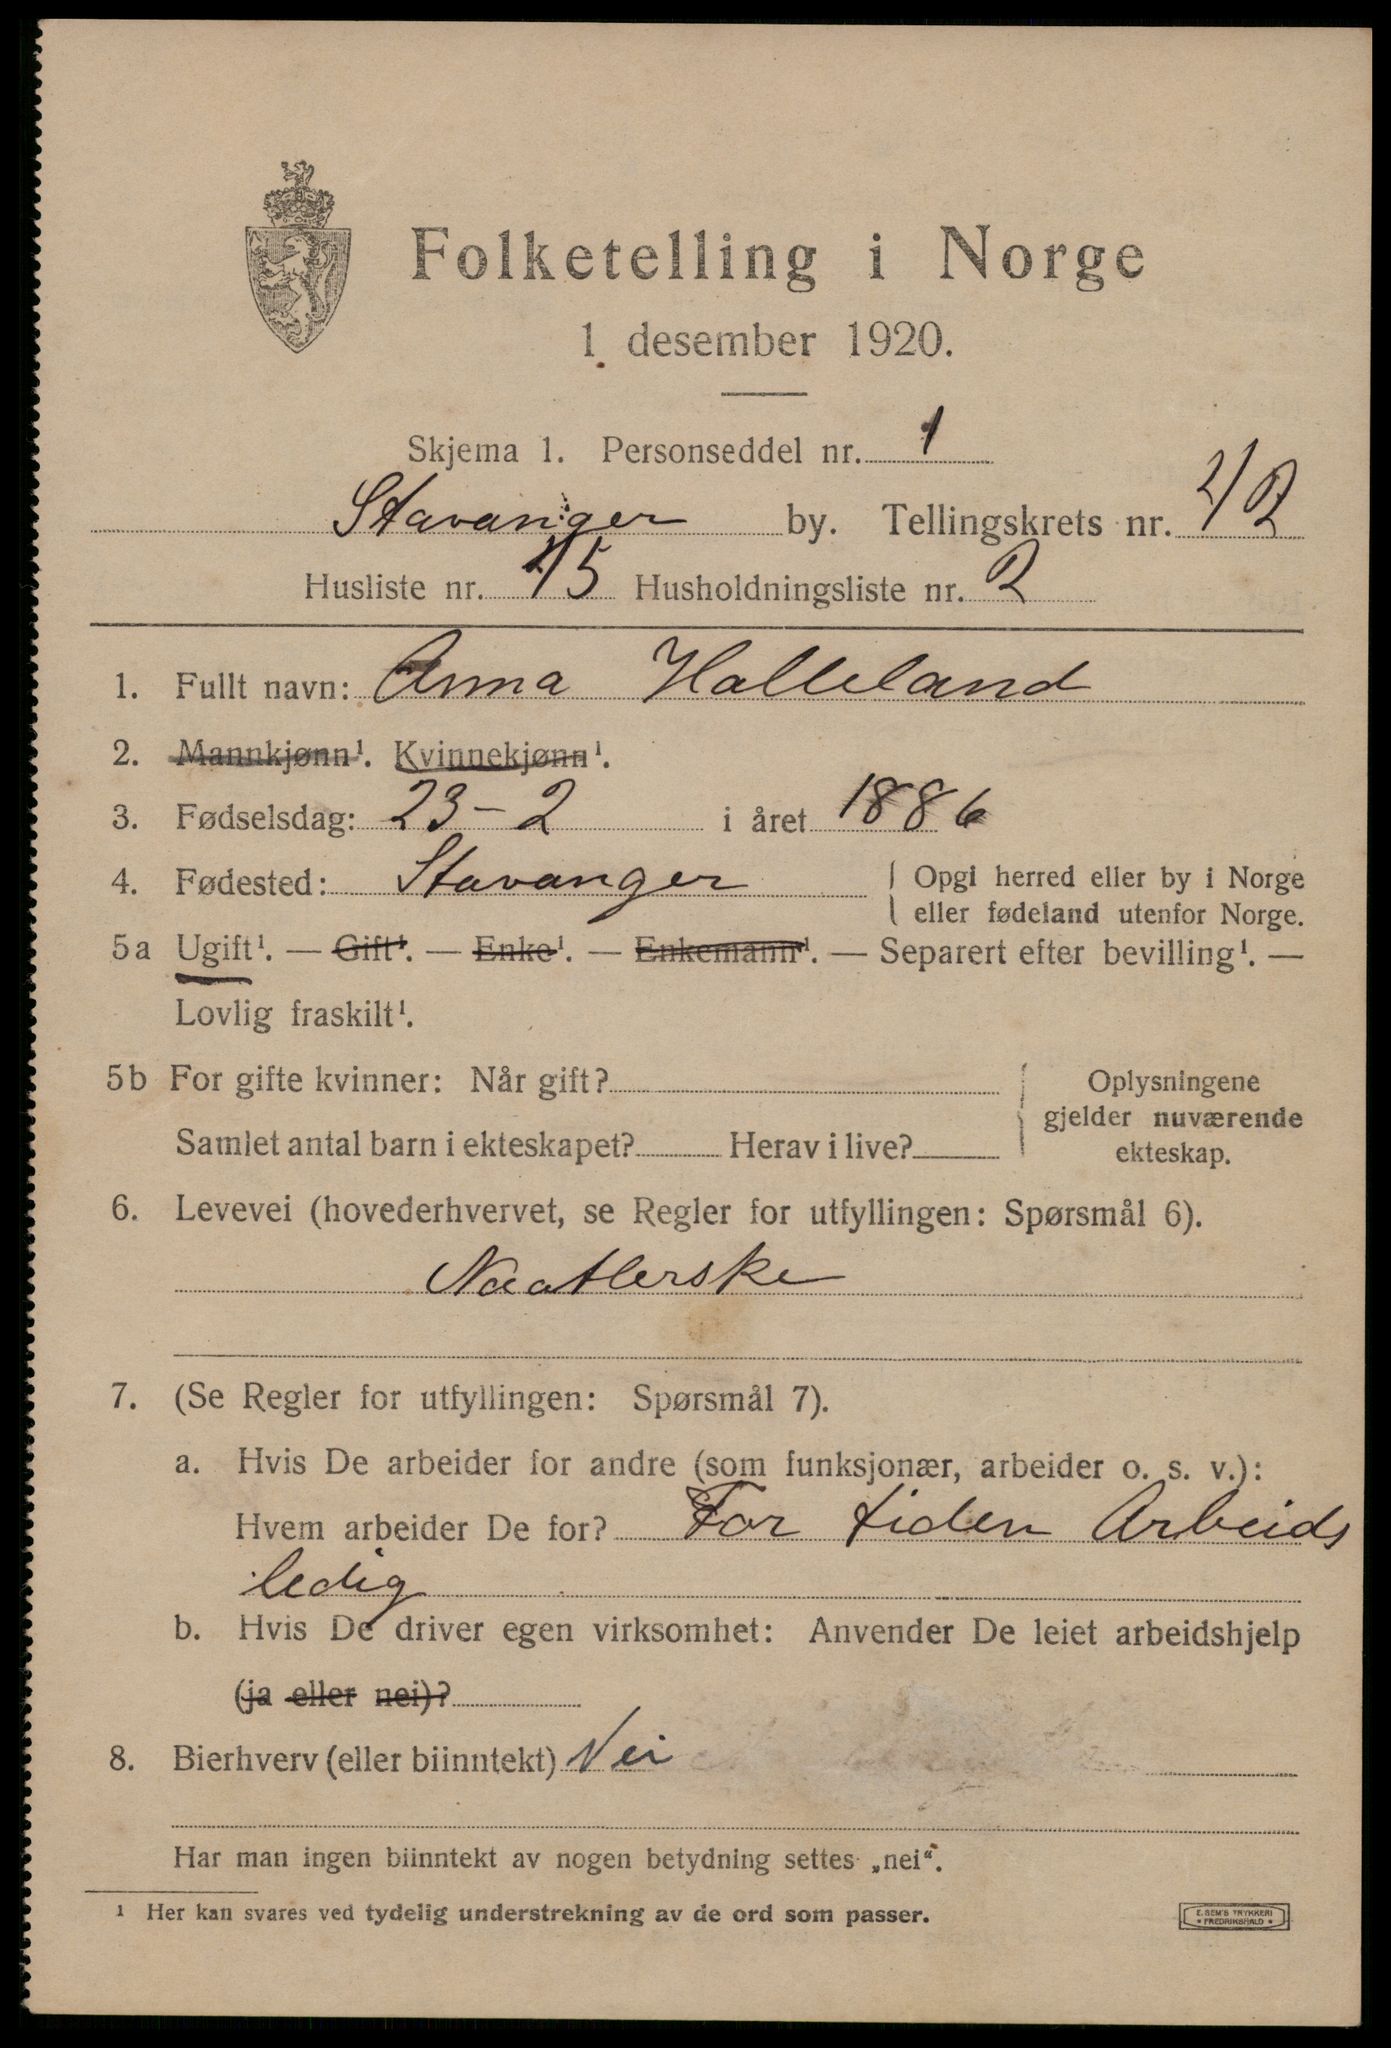 Folketelling i Norge
1 desember 1920.
Skjema 1. Personseddel nr. 1
Stavanger by. Tellingskrets nr. 42
Husliste nr. 45 Husholdningsliste nr. 2
1. Fullt navn: Anna Halleland
2. Mannkjønn¹. Kvinnekjønn¹.
3. Fødselsdag: 23-2 i året 1886
4. Fødested: Stavanger { Opgi herred eller by i Norge
eller fødeland utenfor Norge.
5a Ugift¹. — Gift¹. — Enke¹. — Enkemann¹. — Separert efter bevilling¹. —
Lovlig fraskilt¹.
5b For gifte kvinner: Når gift?
Samlet antal barn i ekteskapet? Herav i live?
Oplysningene
gjelder nuværende
ekteskap.
6. Levevei (hovederhvervet, se Regler for utfyllingen: Spørsmål 6).
Naatlerske
7. (Se Regler for utfyllingen: Spørsmål 7).
a. Hvis De arbeider for andre (som funksjonær, arbeider o. s. v.):
Hvem arbeider De for? For tiden Arbeids
ledig
b. Hvis De driver egen virksomhet: Anvender De leiet arbeidshjelp
(ja eller nei)?
8. Bierhverv (eller biinntekt) Nei
Har man ingen biinntekt av nogen betydning settes „nei“.
¹ Her kan svares ved tydelig understrekning av de ord som passer.
E. SEM'S TRYKKERI
* FREDRIKSHALD *